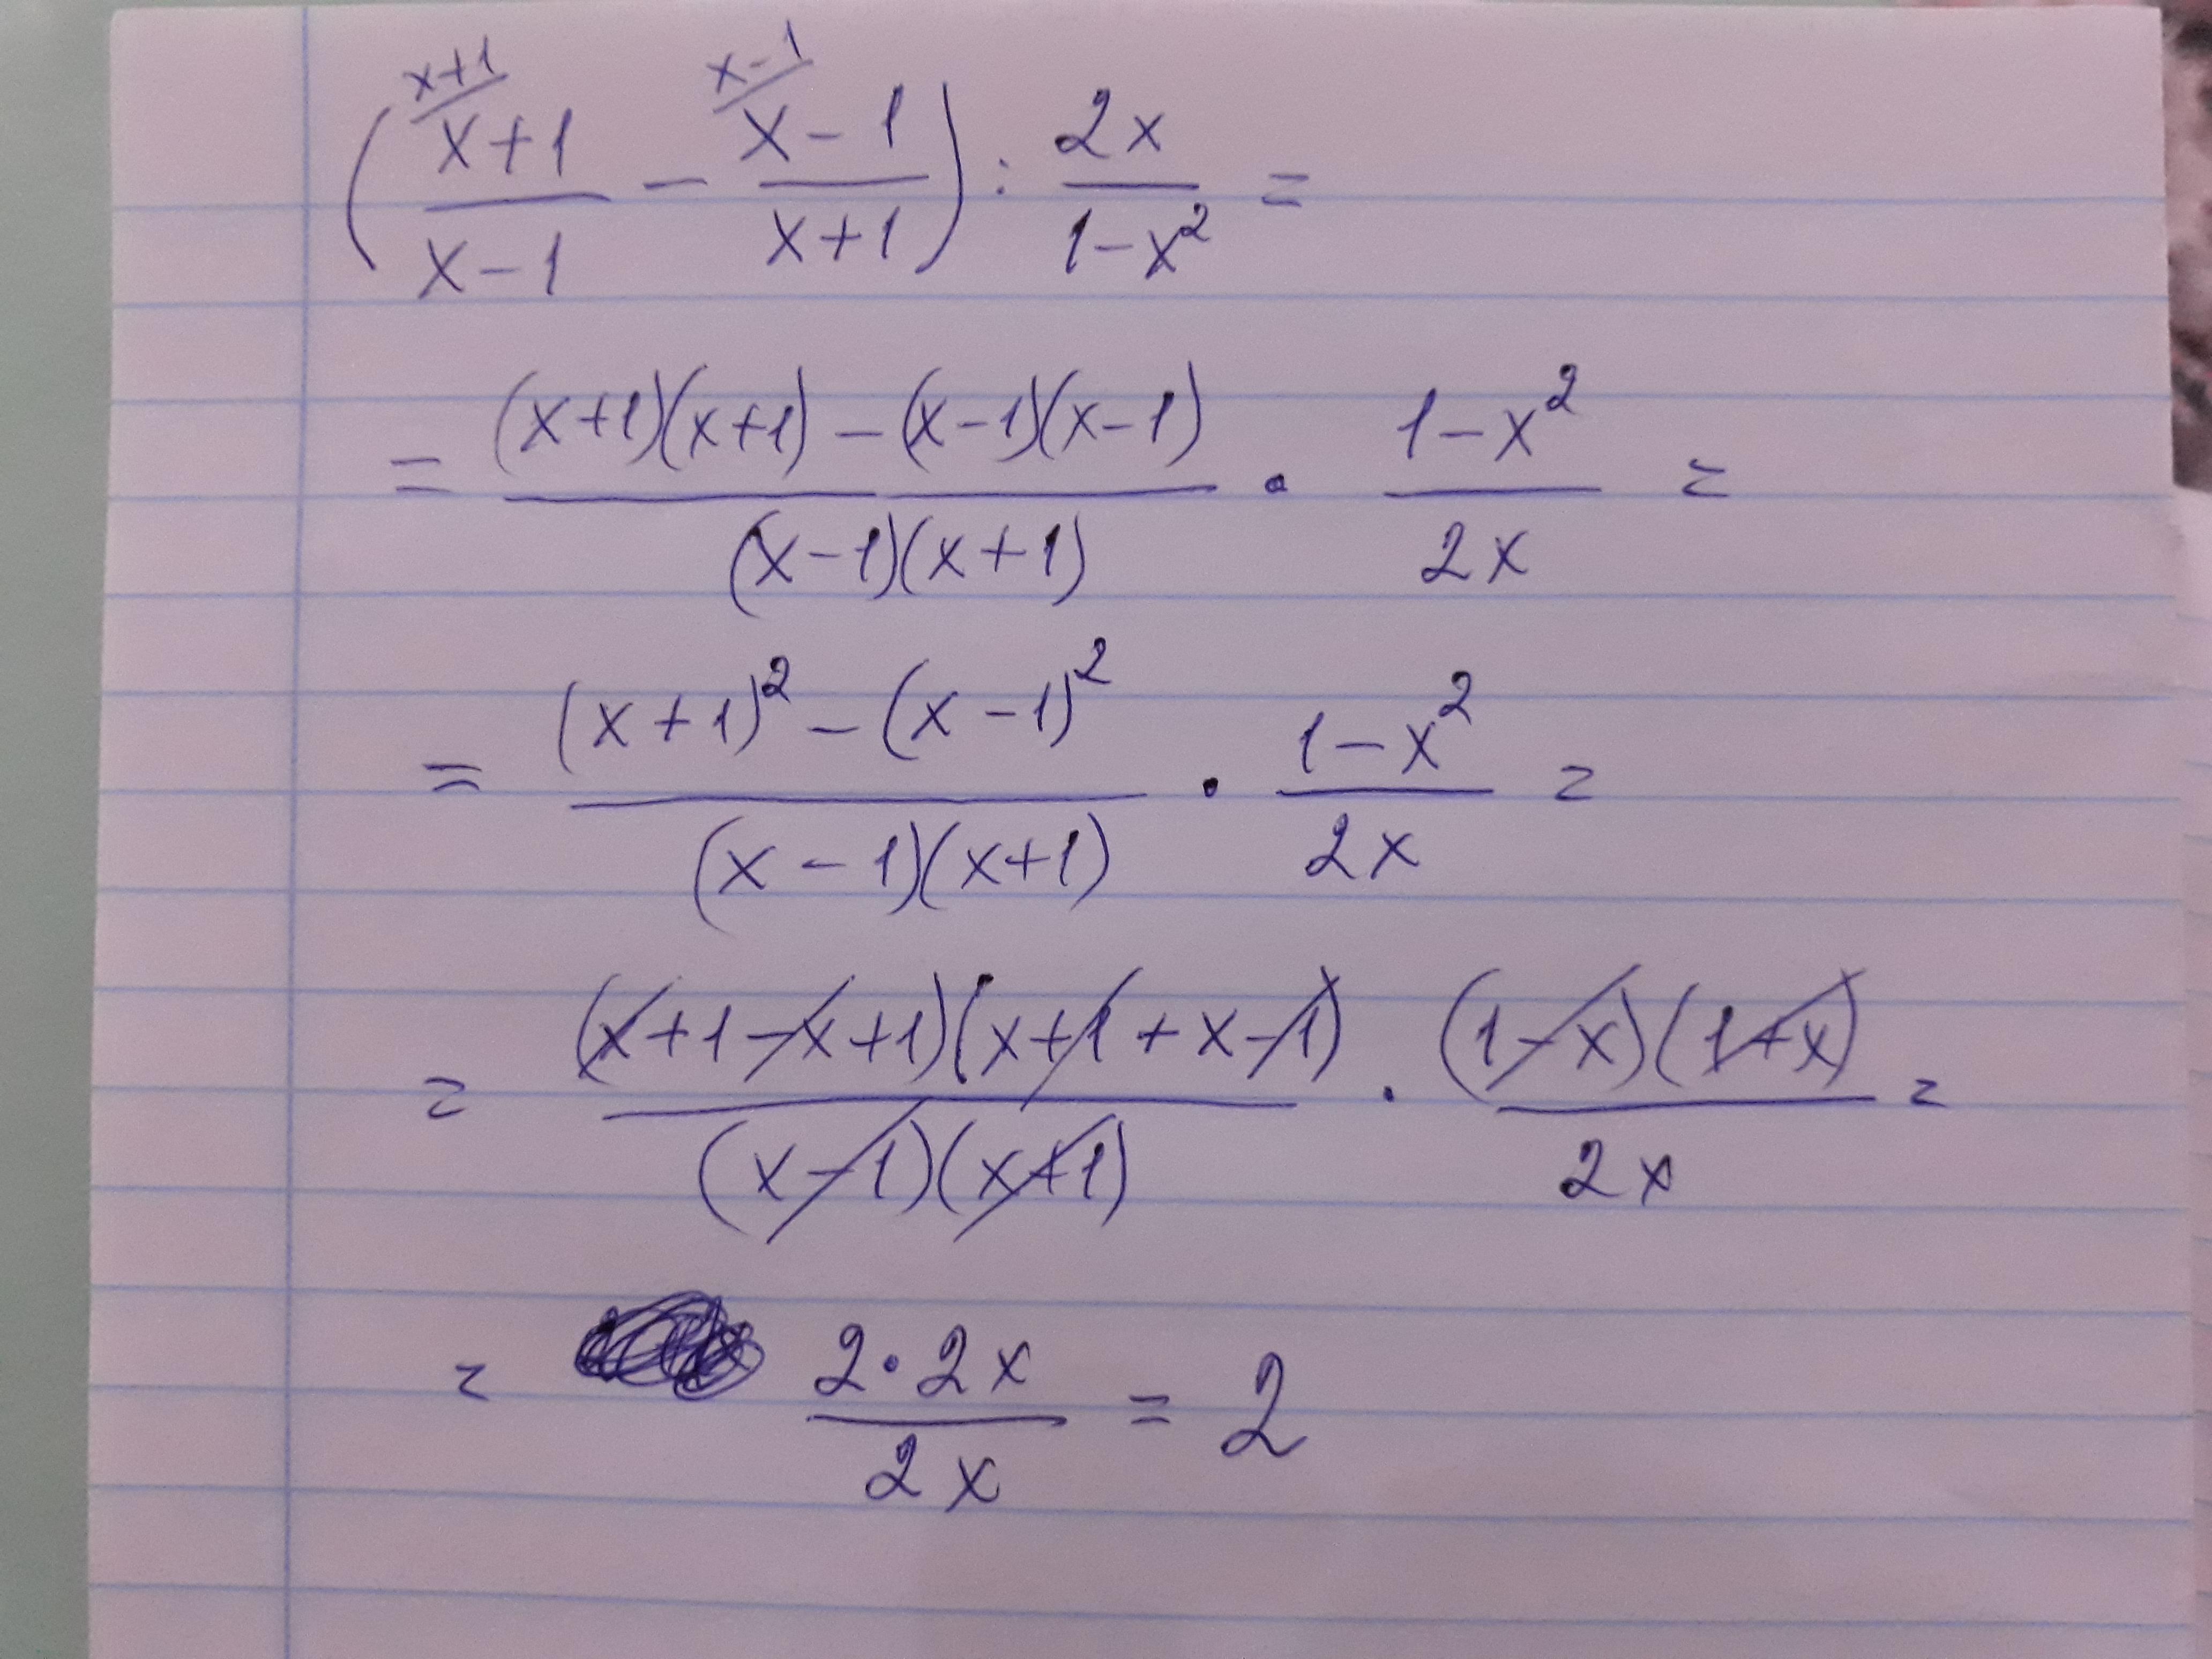 ( x+1/ (x+1)/(x-1) - x-1/ (x-1)/(x+1) ) : 2x/(1-x²) =
= ((x+1)(x+1) - (x-1)(x-1))/((x-1)(x+1)) · (1-x²)/(2x) =
= ((x+1)² - (x-1)²)/((x-1)(x+1)) · (1-x²)/(2x) =
= ((x+1-x+1)(x+1+x-1))/((x-1)(x+1)) · ((1-x)(1+x))/(2x) =
= (2·2x)/(2x) = 2